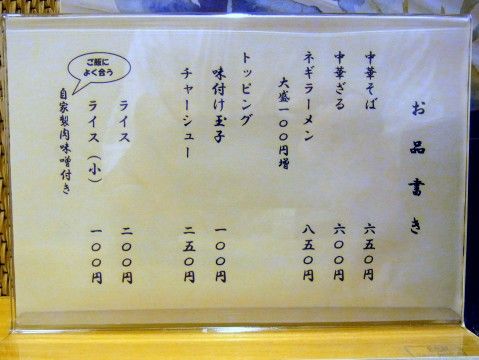 お品書き
中華そば 六五〇円
中華ざる 六〇〇円
ネギラーメン 八五〇円
大盛一〇〇円増
トッピング
味付け玉子 一〇〇円
チャーシュー 二五〇円
ライス 二〇〇円
ライス（小） 一〇〇円
ご飯に
よく合う
自家製肉味噌付き